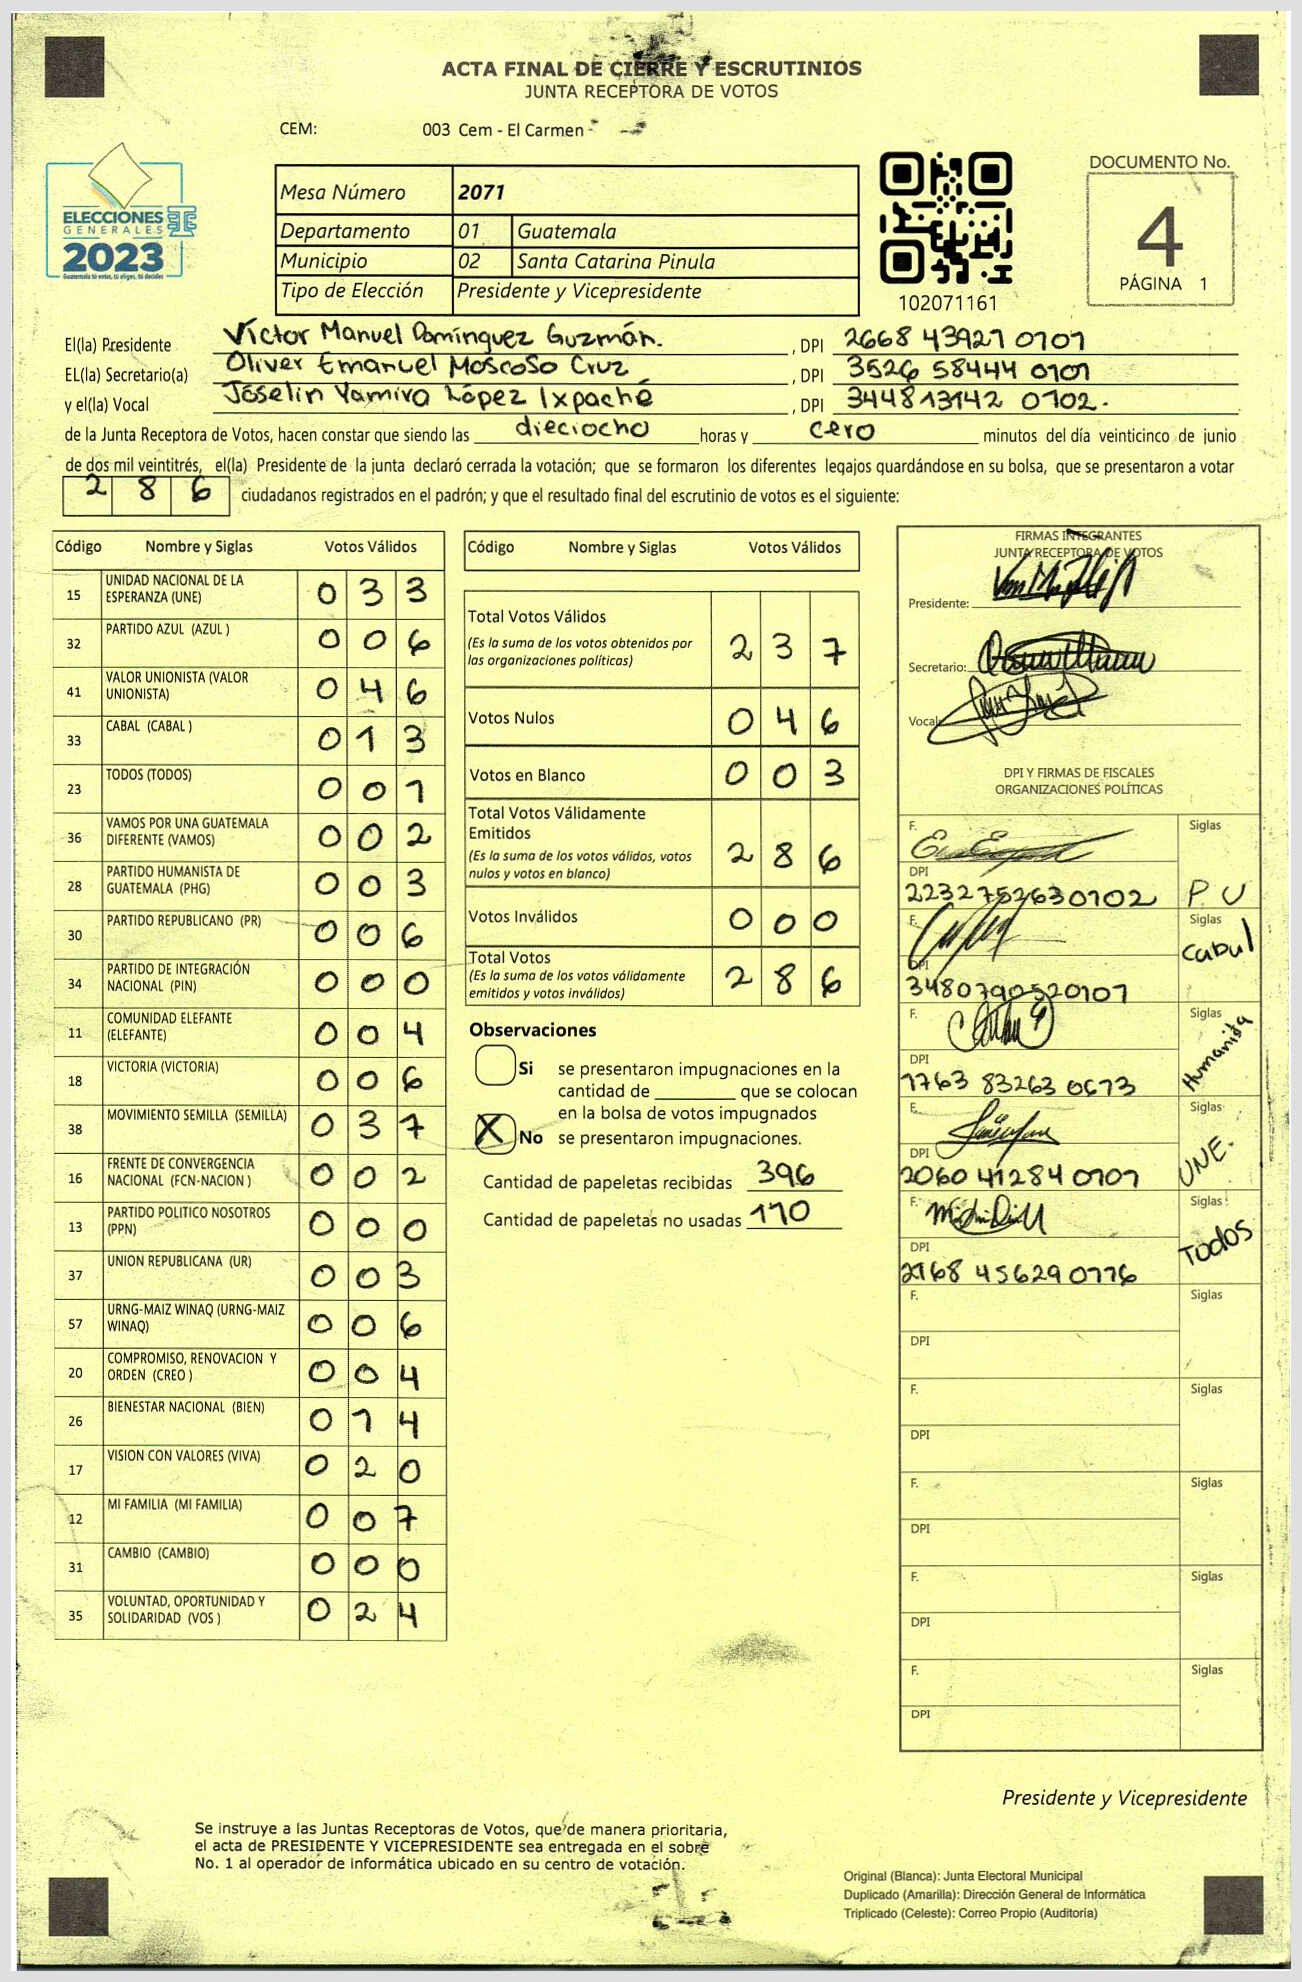 ACTA FINAL DE CIERRE Y ESCRUTINIOS
JUNTA RECEPTORA DE VOTOS
CEM: 003 Cem - El Carmen
ELECCIONES
GENERALES
2023
Guatemala tú votas, tú eliges, tú decides
Mesa Número 2071
Departamento 01 Guatemala
Municipio 02 Santa Catarina Pinula
Tipo de Elección Presidente y Vicepresidente
102071161
DOCUMENTO No.
4
PÁGINA 1
El(la) Presidente Víctor Manuel Domínguez Guzmán. , DPI 2668 43927 0101
EL(la) Secretario(a) Oliver Emanuel Moscoso Cruz , DPI 3526 58444 0101
y el(la) Vocal Joselin Yamira López Ixpaché , DPI 344813142 0102.
de la Junta Receptora de Votos, hacen constar que siendo las dieciocho horas y cero minutos del día veinticinco de junio
de dos mil veintitrés, el(la) Presidente de la junta declaró cerrada la votación; que se formaron los diferentes legajos guardándose en su bolsa, que se presentaron a votar
286 ciudadanos registrados en el padrón; y que el resultado final del escrutinio de votos es el siguiente:
Código Nombre y Siglas Votos Válidos
15 UNIDAD NACIONAL DE LA ESPERANZA (UNE) 033
32 PARTIDO AZUL (AZUL ) 006
41 VALOR UNIONISTA (VALOR UNIONISTA) 046
33 CABAL (CABAL ) 013
23 TODOS (TODOS) 001
36 VAMOS POR UNA GUATEMALA DIFERENTE (VAMOS) 002
28 PARTIDO HUMANISTA DE GUATEMALA (PHG) 003
30 PARTIDO REPUBLICANO (PR) 006
34 PARTIDO DE INTEGRACIÓN NACIONAL (PIN) 000
11 COMUNIDAD ELEFANTE (ELEFANTE) 004
18 VICTORIA (VICTORIA) 006
38 MOVIMIENTO SEMILLA (SEMILLA) 037
16 FRENTE DE CONVERGENCIA NACIONAL (FCN-NACION ) 002
13 PARTIDO POLITICO NOSOTROS (PPN) 000
37 UNION REPUBLICANA (UR) 003
57 URNG-MAIZ WINAQ (URNG-MAIZ WINAQ) 006
20 COMPROMISO, RENOVACION Y ORDEN (CREO ) 004
26 BIENESTAR NACIONAL (BIEN) 014
17 VISION CON VALORES (VIVA) 020
12 MI FAMILIA (MI FAMILIA) 007
31 CAMBIO (CAMBIO) 000
35 VOLUNTAD, OPORTUNIDAD Y SOLIDARIDAD (VOS ) 024
Código Nombre y Siglas Votos Válidos
Total Votos Válidos 237
(Es la suma de los votos obtenidos por
las organizaciones políticas)
Votos Nulos 046
Votos en Blanco 003
Total Votos Válidamente
Emitidos 286
(Es la suma de los votos válidos, votos
nulos y votos en blanco)
Votos Inválidos 000
Total Votos 286
(Es la suma de los votos válidamente
emitidos y votos inválidos)
Observaciones
Si se presentaron impugnaciones en la
cantidad de ________ que se colocan
en la bolsa de votos impugnados
X No se presentaron impugnaciones.
Cantidad de papeletas recibidas 396
Cantidad de papeletas no usadas 110
FIRMAS INTEGRANTES
JUNTA RECEPTORA DE VOTOS
Presidente:
Secretario:
Vocal:
DPI Y FIRMAS DE FISCALES
ORGANIZACIONES POLÍTICAS
F. Siglas
DPI
2232752630102 P. U
F. Siglas
Cabal
DPI
3480790520101
F. Siglas
Humanista
DPI
1763 83263 0613
F. Siglas
UNE.
DPI
2060 41284 0101
F. Siglas
Todos
DPI
2768 456290116
F. Siglas
DPI
F. Siglas
DPI
F. Siglas
DPI
F. Siglas
DPI
F. Siglas
DPI
Presidente y Vicepresidente
Se instruye a las Juntas Receptoras de Votos, que de manera prioritaria,
el acta de PRESIDENTE Y VICEPRESIDENTE sea entregada en el sobre
No. 1 al operador de informática ubicado en su centro de votación.
Original (Blanca): Junta Electoral Municipal
Duplicado (Amarilla): Dirección General de Informática
Triplicado (Celeste): Correo Propio (Auditoria)